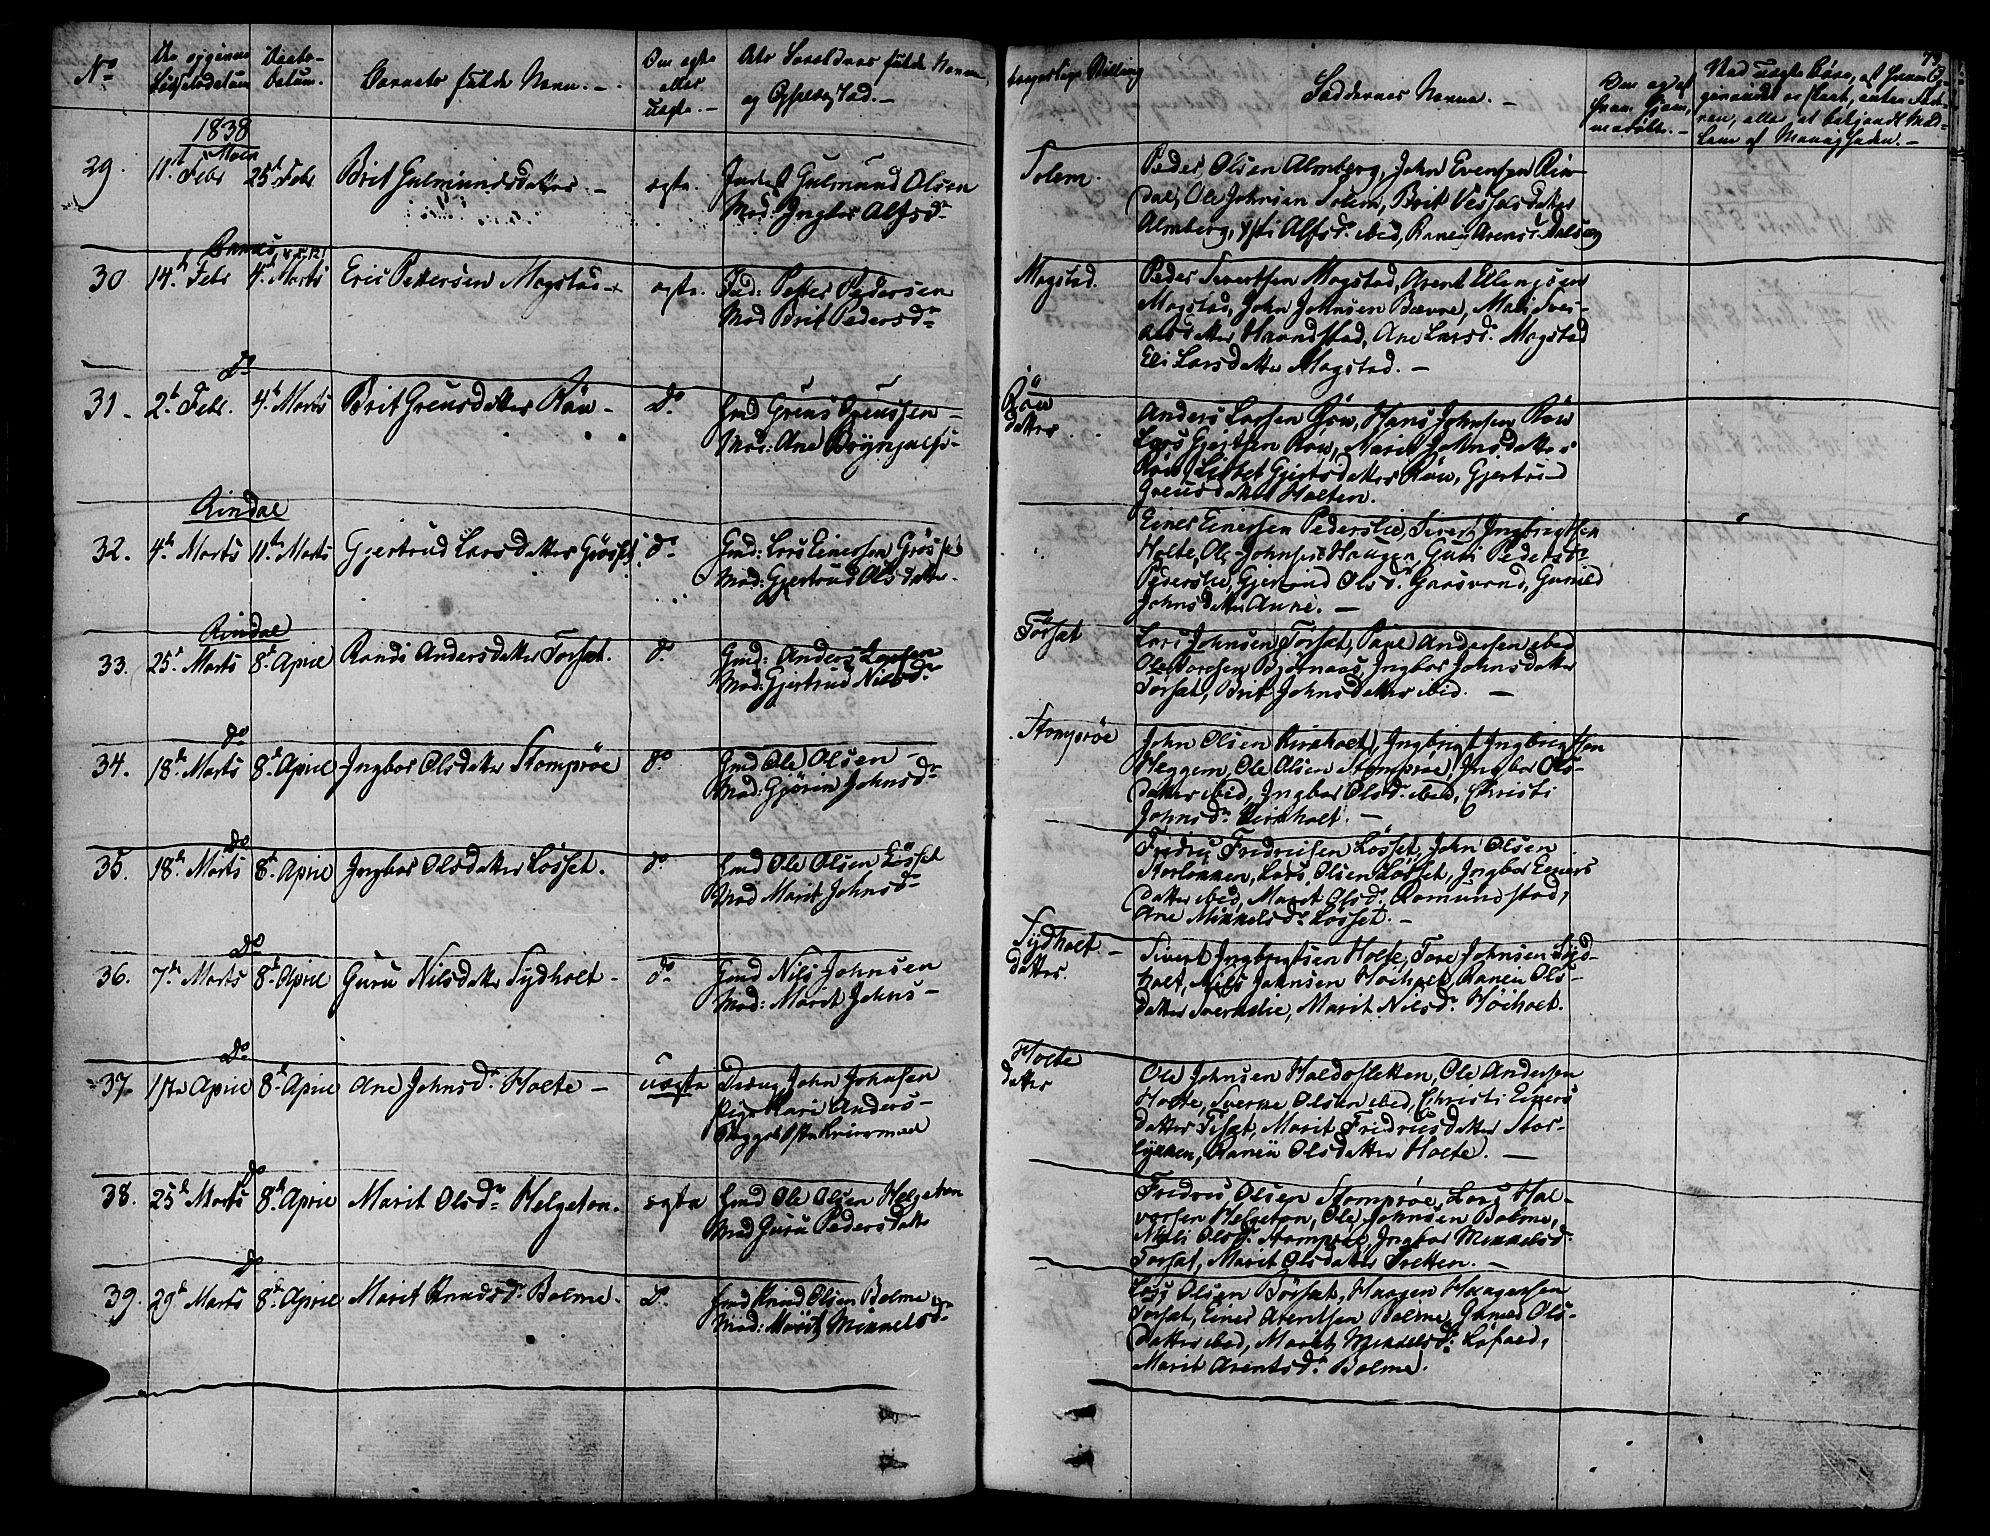 No
Barnets fulde Navn. -
Om ægte
eller
uægte. -
og Opholds Sted. -
borgerlige Stilling
Faddernes Navne. -
73.
1838
29. 11t Febr 25t Febr Brit Gulmundsdatter - ægte. Gulmund Olsen
Mod: Ingbor Alfsdr
Solem.
Peder Olsen Almberg, John Evensen Rin-
dal, Ole Johnsen Solem, Brit Vesselsdatter
Almberg, Alfsd. ibid,
30 14t Febr 4t Marts Eric Pettersen Mogstad ægte. Petter Pedersen
Mod Brit Pedersdr
Mogstad.
Peder Sivertsen Mogstad, Arent Ellingsen
Mogstad, John Johnsen Bævre, Mali Siver
datter Haandstad, Ane Larsd. Mogstad
Eli Larsdatter Mogstad. -
Do
31 - 2t Febr. 4t Marts Brit Greusdatter Røw - Do Gmd Greus Greussen -
Mod: Ane Brynjulfs-
Røw
datter
Anders Larsen Røw, Hans Johnsen Røw
Lars Gjertsen Røw, Marit Johnsdatter
Røw, Lisbet Gjertsdatter Røw, Gjertru-d
Greusdatter Holten.
Rindal
32. 4t Marts 11te Marts Gjertrud Larsdatter Grøsset do Gmd: Lars Einersen Grøsset
Mod: Gjertrud Olsdatter.
Einer Einersen Pederslie, Sivert Ingbrigtsen
Holte, Ole Johnsen Haagen, Guri Pedersdr
Pederslie, Gjertrud Olsd. Gaasvand, Gunild
Johnsdatter Aune. -
Rindal
33. 25t Marts 8t April Randi Andersdatter Torset. do Gmd: Anders Larsen
Mod: Gjertrud Nilsdr
Torset
Lars Johnsen Torset, Paul Andersen ibid
Ole Torersen Bjørnaas, Ingbor Johnsdatter
Torset, Brit Johnsdatter ibid. -
do
34. 18de Marts 8t April Ingbor Olsdatter Stomprøe do Gmd Ole Olsen -
Mod: Gjørin Johnsdr
Stomprøe
John Olsen Kirkholt, Ingbrigt Ingbrigtsen
Heggem, Ole Olsen Stomprøe, Ingbor Ols-
datter ibid, Ingbor Olsd. ibid, Christi
Johnsdr Kirkholt. -
Do
35. 18de Marts 8t April Ingbor Olsdatter Løsset. do Gmd Ole Olsen Løsset
Mod Marit Johnsdr
Fredric Fredricsen Løsset, John Olsen
Storløkken, Lars Olsen Løsset, Ingbor Einers
datter ibid, Marit Olsd. Romundstad,
Ane Mikkelsdr Løsset. -
Do
36. 7de Marts 8t April Guru Nilsdatter Sydholt - do Gmd Nils Johnsen
Mod: Marit Johns -
Sydholt -
datter.
Sivert Ingbrigtsen Holte, Tore Johnsen Syd-
holt, Nils Johnsen Høiholt, Ranei Ols-
datter Sverkelie, Marit Nilsdr Høiholt.
Do
37. 1ste April 8t April Ane Johnsdr Holte - uægte Dreng John Johnsen
Pige Kari Anders -
Holte
datter
Ole Johnsen Haldosletten, Ole Andersen
Holte, Sverke Olsen ibid, Christi Einers
datter Tiset, Marit Fredricsdatter Stor-
løkken, Ranei Olsdatter Holte. -
do
38. 25t Marts 8t April Marit Olsdr Helgeton. ægte Gmd Ole Olsen Helgeton
Mod Guru Pedersdatter
Fredric Olsen Stomprøe, Lars Hal-
vorsen Helgeton, Ole Johnsen Bolme,
Mali Olsd. Stomprøe, Ingbor Mikkelsd.
Torset, Marit Olsdatter Tretten. -
do
39. 29de Marts 8t April Marit Knudsdr Bolme. d. Gmd Knud Olsen Bolme
Mod: Marit Mikkelsdr
Lars Olsen Børset, Haagen Haagensen
Torset, Einer Arentsen Bolme, Guned Ols-
datter ibid, Marit Mikkelsd. Løfald,
Marit Arentsdr Bolme.